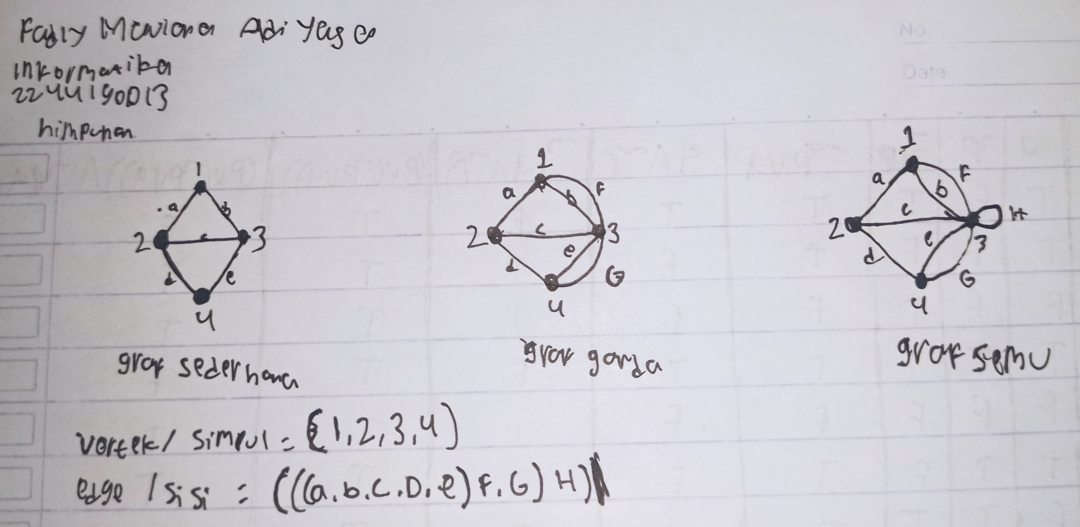 Fadly Maulana Adi
informatika
himpunan
No.
Date
1
a b
2 c 3
d e
4
graf sederhana
1
a b F
2 c 3
d e G
4
graf ganda
1
a b F
2 c 3 H
d e G
4
graf semu
vortek/ simpul = {1,2,3,4}
edge / sisi = (((a.b.c.D.e) F.G) H)